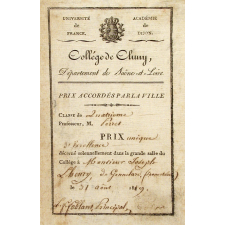 UNIVERSITÉ
de
FRANCE.
ACADÉMIE
de
DIJON.
Collége de Cluny,
Département de Saône-et-Loire
PRIX ACCORDÉS PAR LA VILLE
Classe de Quatrième
Professeur, M.
PRIX unique
d'excellence
Décerné solennellement dans la grande salle du
Collége à Monsieur Joseph
de
le 31 août
Principal